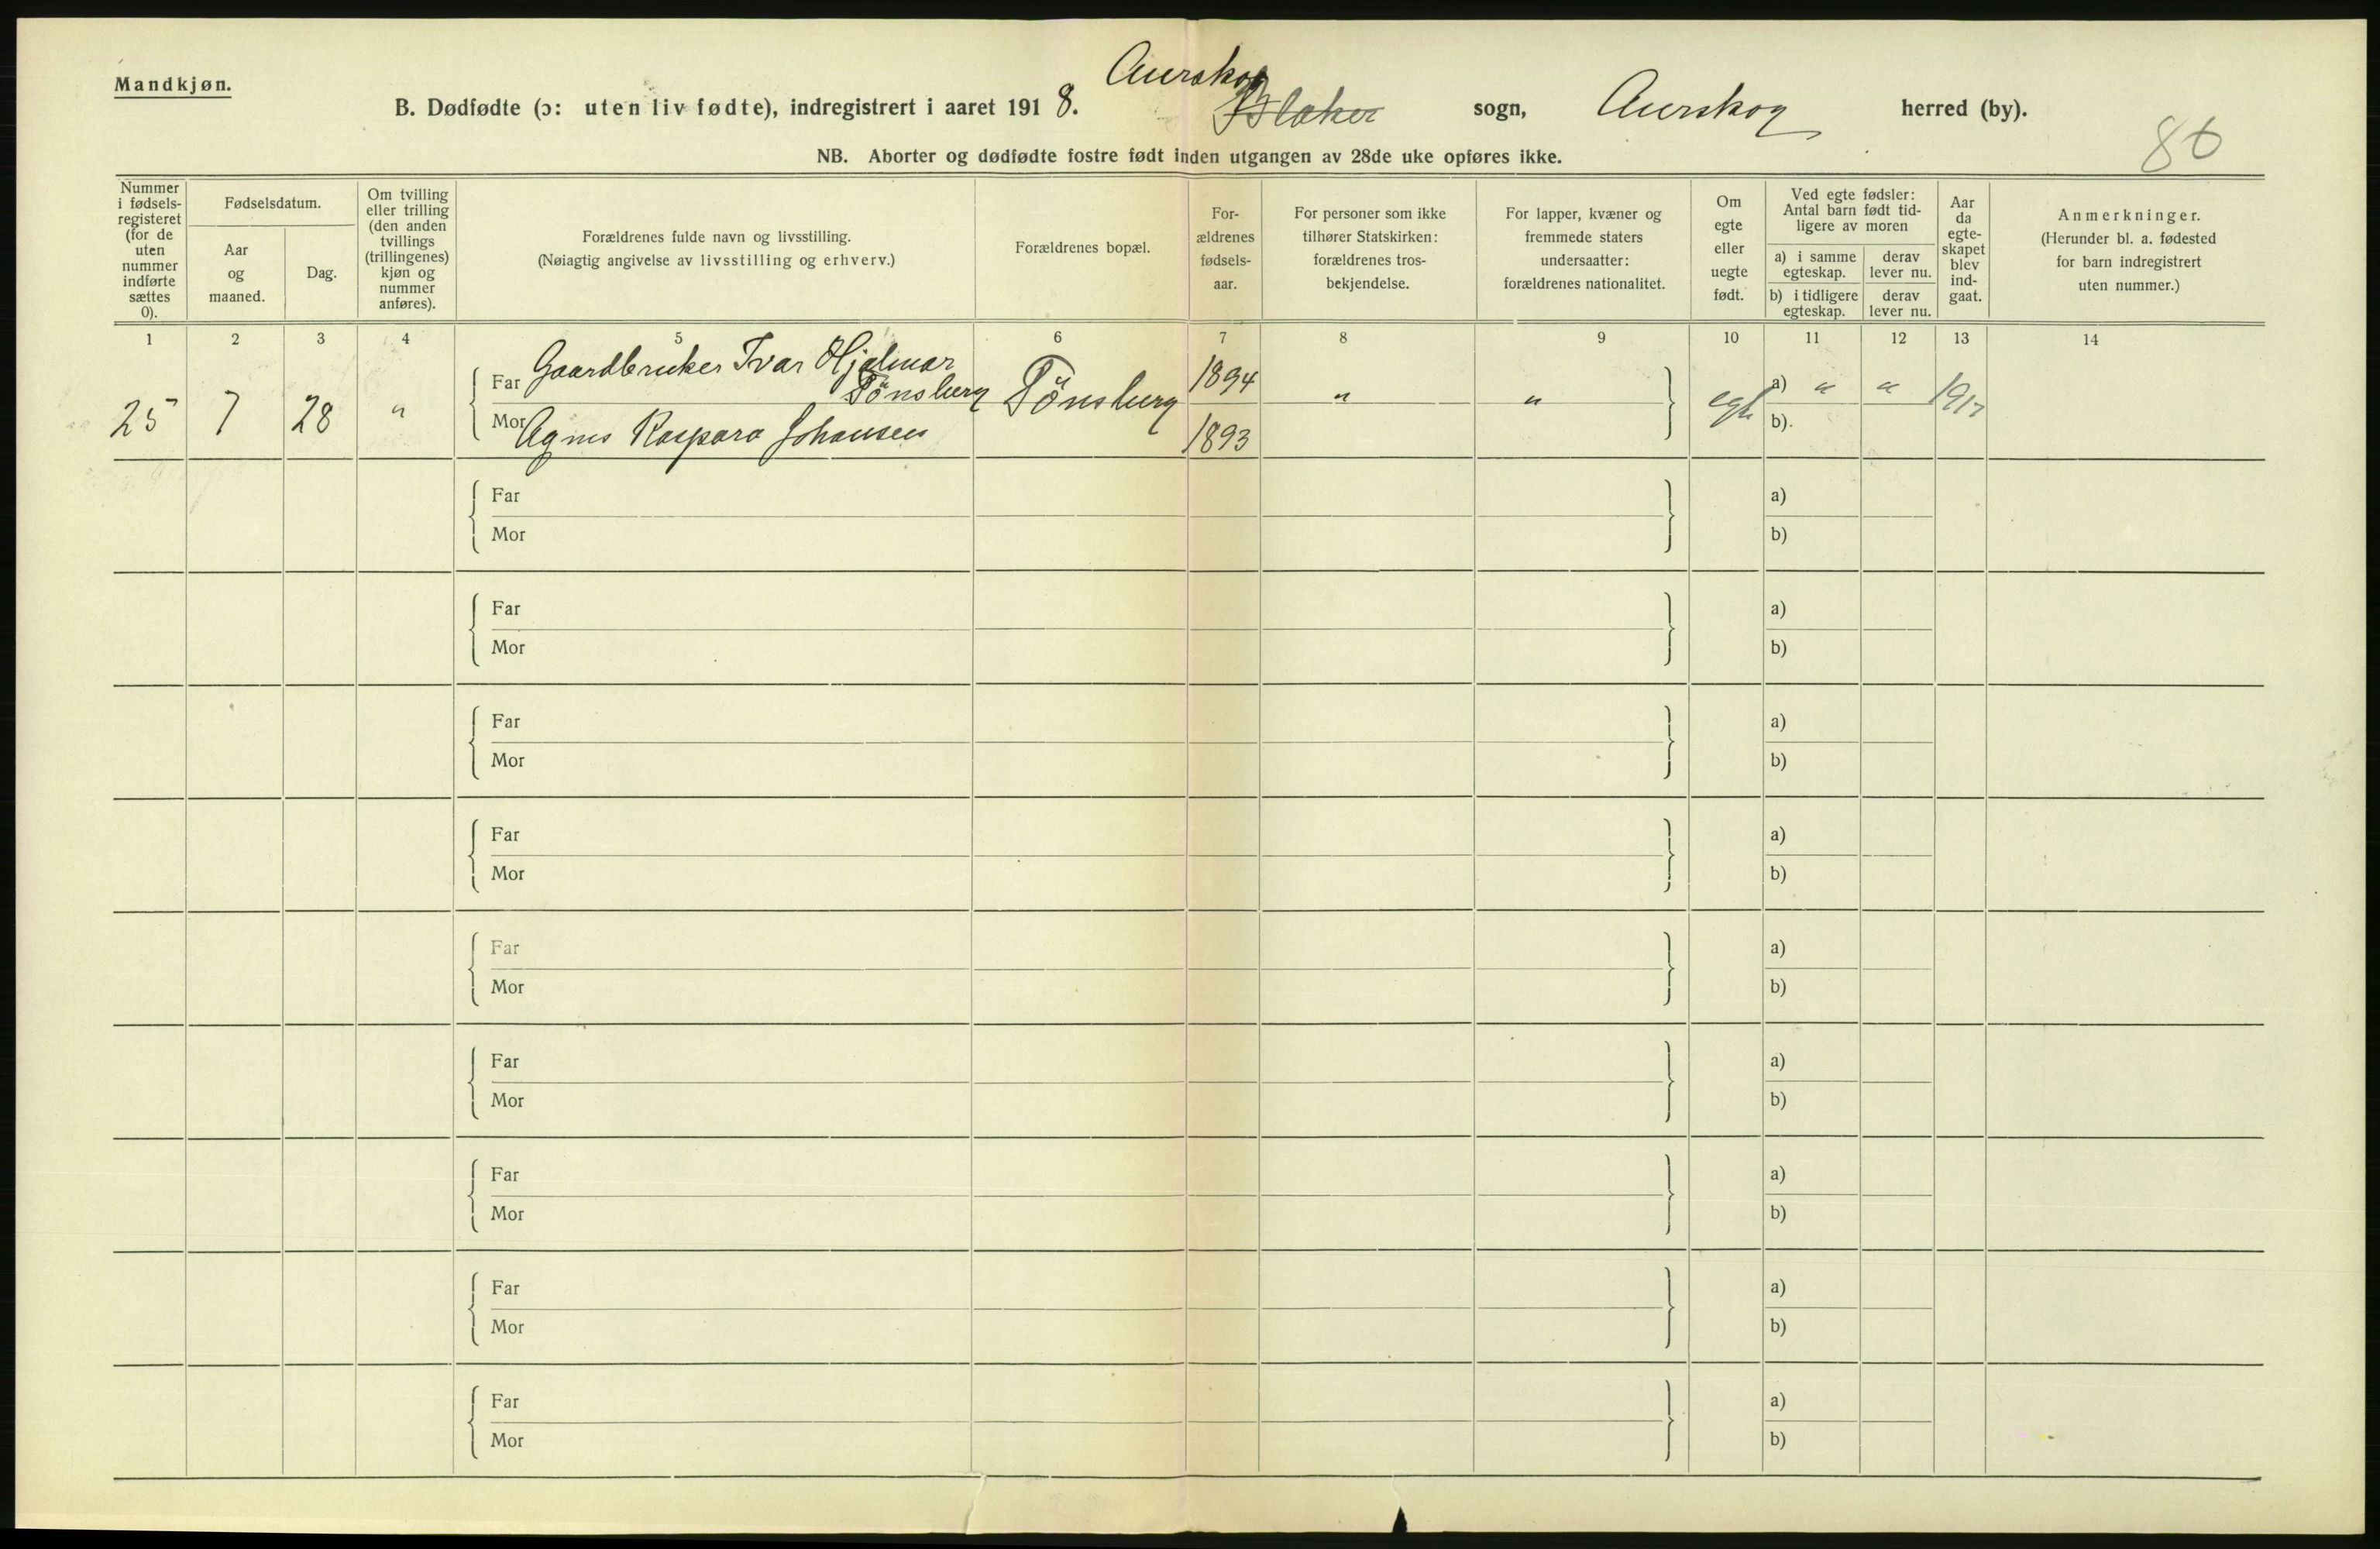 Mandkjøn.
Aurskog
B. Dødfødte (ɔ: uten liv fødte), indregistrert i aaret 1918. Blaker sogn, Aurskog herred (by).
80
NB. Aborter og dødfødte fostre født inden utgangen av 28de uke opføres ikke.
Nummer i fødsels-registeret (for de uten nummer indførte sættes 0).
Fødselsdatum.
Aar og maaned.
Dag.
Om tvilling eller trilling (den anden tvillings (trillingenes) kjøn og nummer anføres).
Forældrenes fulde navn og livsstilling.
(Nøiagtig angivelse av livsstilling og erhverv.)
Forældrenes bopæl.
For-ældrenes fødsels-aar.
For personer som ikke tilhører Statskirken: forældrenes tros-bekjendelse.
For lapper, kvæner og fremmede staters undersaatter: forældrenes nationalitet.
Om egte eller uegte født.
Ved egte fødsler: Antal barn født tid-ligere av moren
a) i samme egteskap.
derav lever nu.
b) i tidligere egteskap.
derav lever nu.
Aar da egte-skapet blev ind-gaat.
Anmerkninger.
(Herunder bl. a. fødested for barn indregistrert uten nummer.)
1 2 3 4 5 6 7 8 9 10 11 12 13 14
25 7 28 " Far Gaardbruker Ivar Hjalmar Tönsberg Tönsberg 1894 " " egte a) " " 1917
Mor Agnes Kaspara Johansen 1893 b).
Far a)
Mor b)
Far a)
Mor b)
Far a)
Mor b)
Far a)
Mor b)
Far a)
Mor b)
Far a)
Mor b)
Far a)
Mor b)
Far a)
Mor b)
Far a)
Mor b)